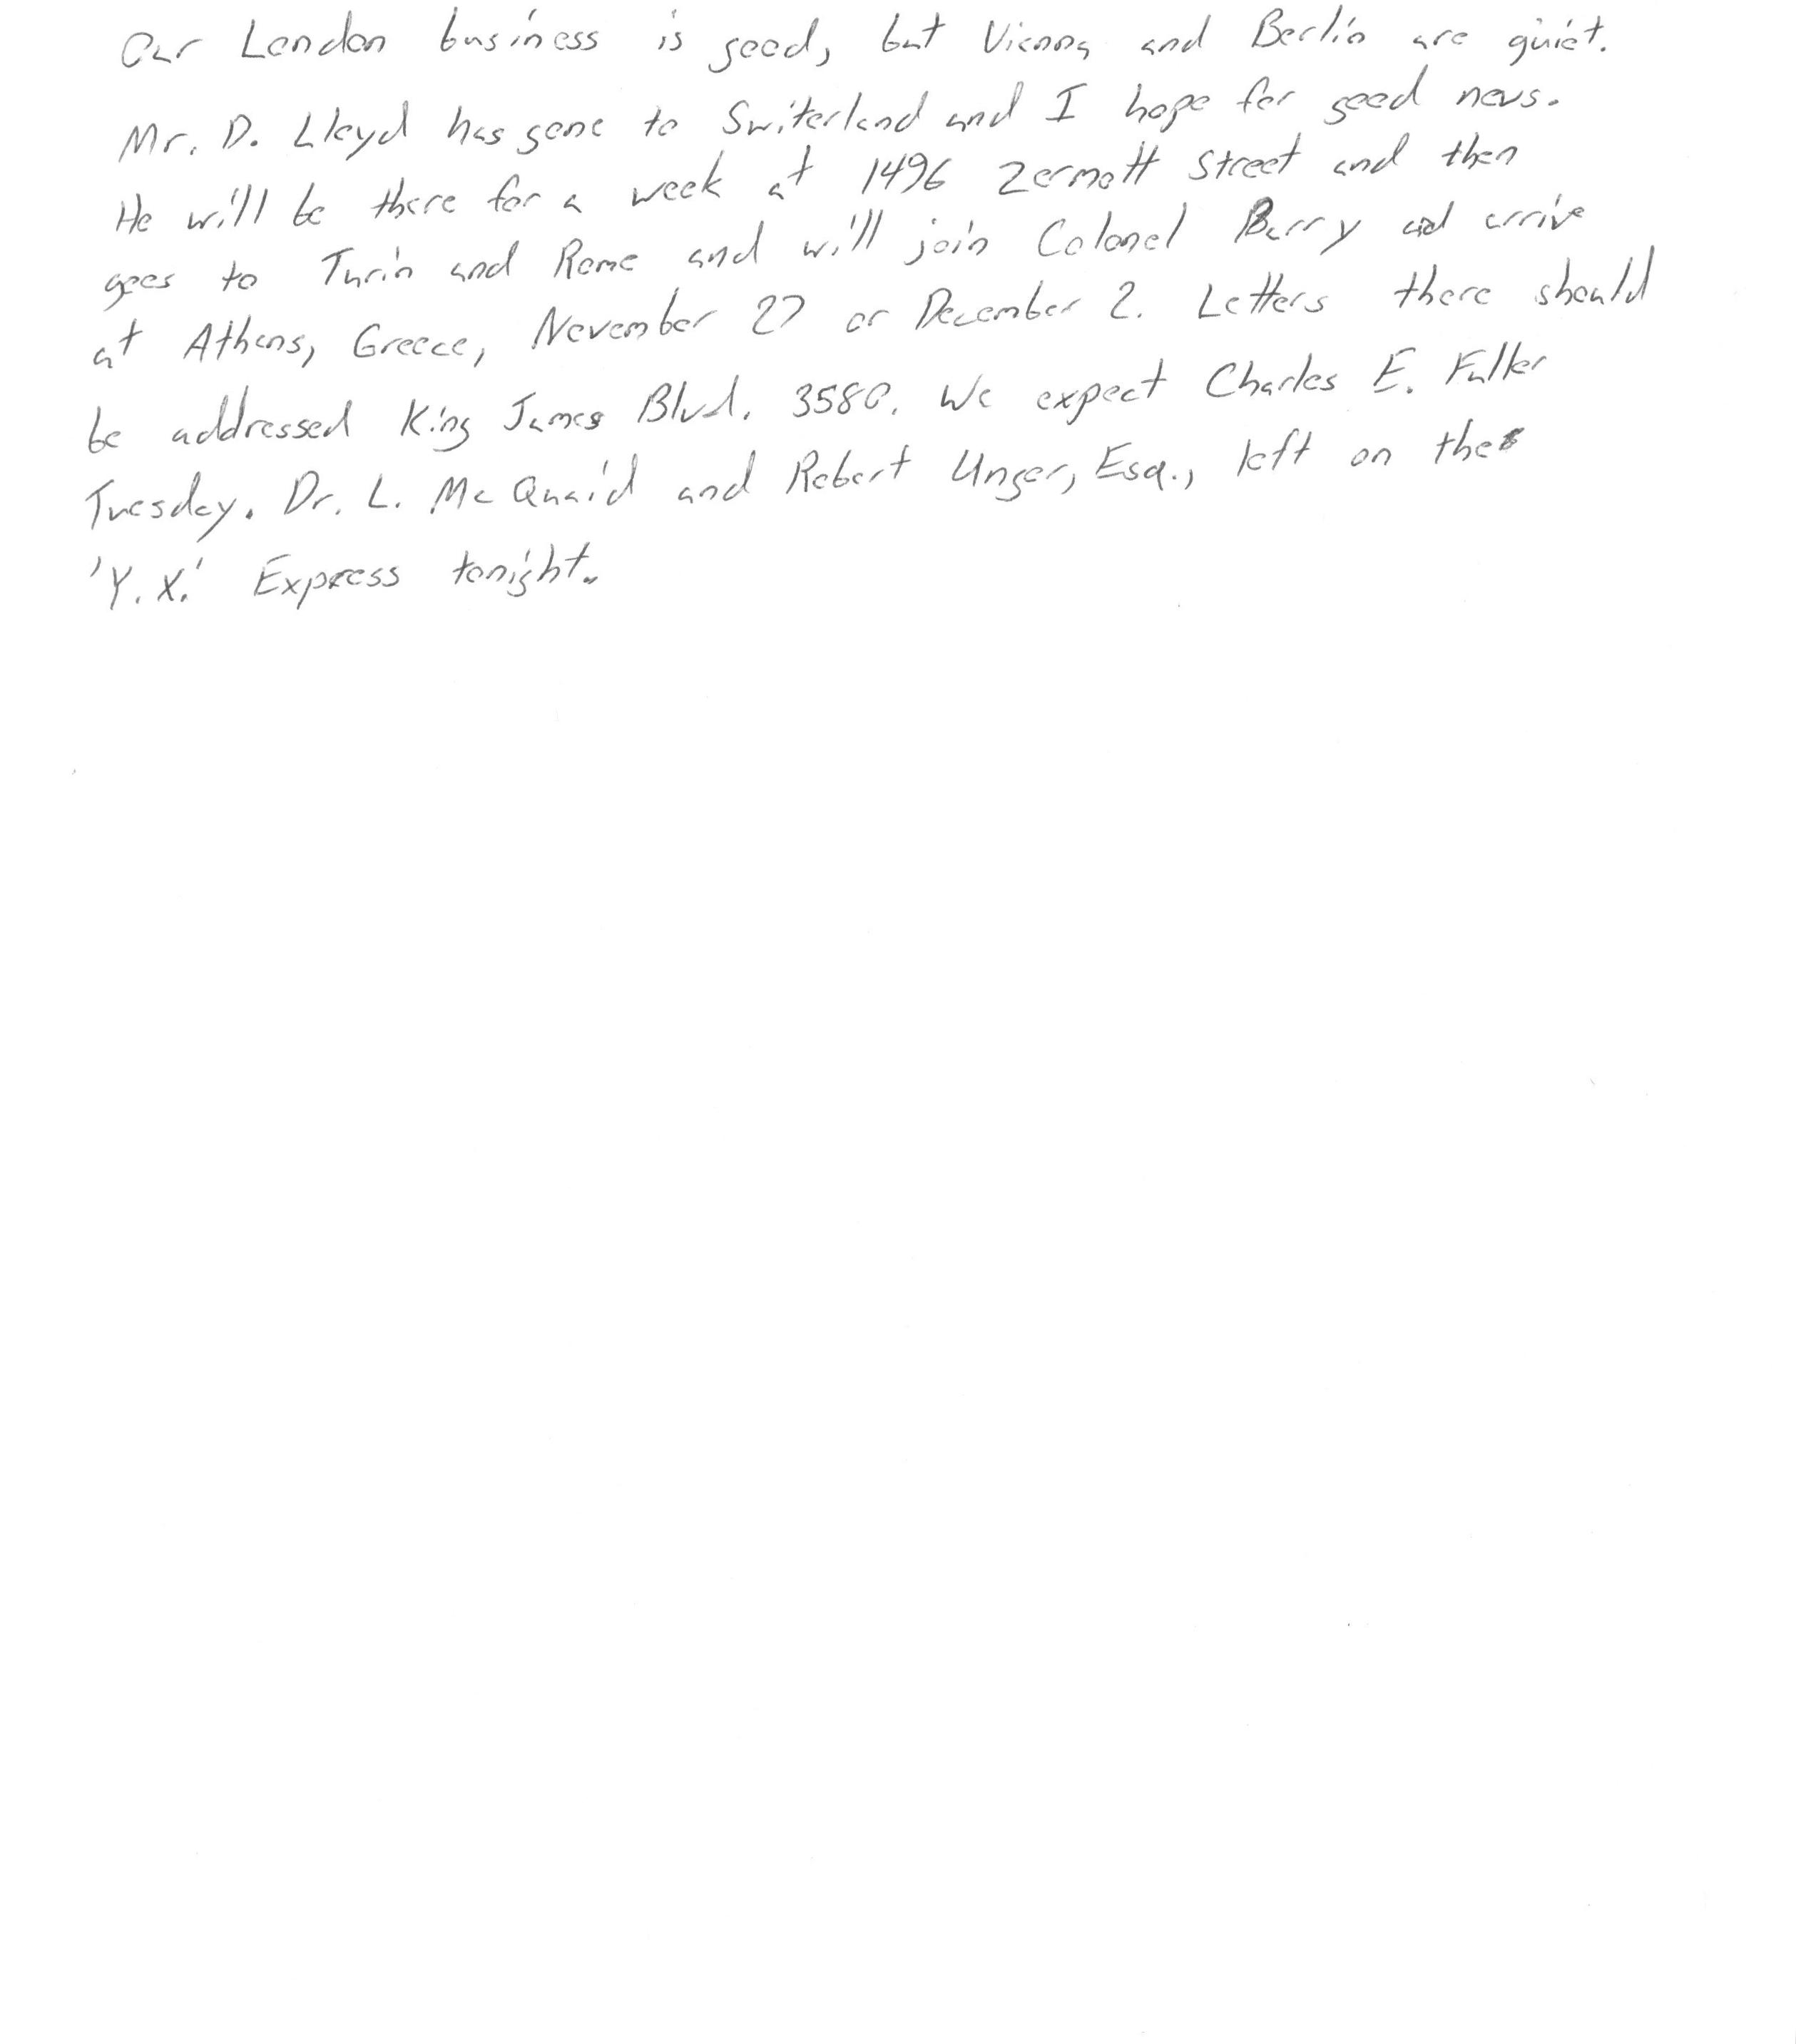 Our London business is good, but Vienna and Berlin are quiet.
Mr. D. Lloyd has gone to Switerland and I hope for good news.
He will be there for a week at 1496 Zermott Street and then
goes to Turin and Rome and will join Colonel Barry and arrive
at Athens, Greece, November 27 or December 2. Letters there should
be addressed King James Blvd. 3580. We expect Charles E. Fuller
Tuesday. Dr. L. McQuaid and Robert Unger, Esq., left on the
'Y.X.' Express tonight.